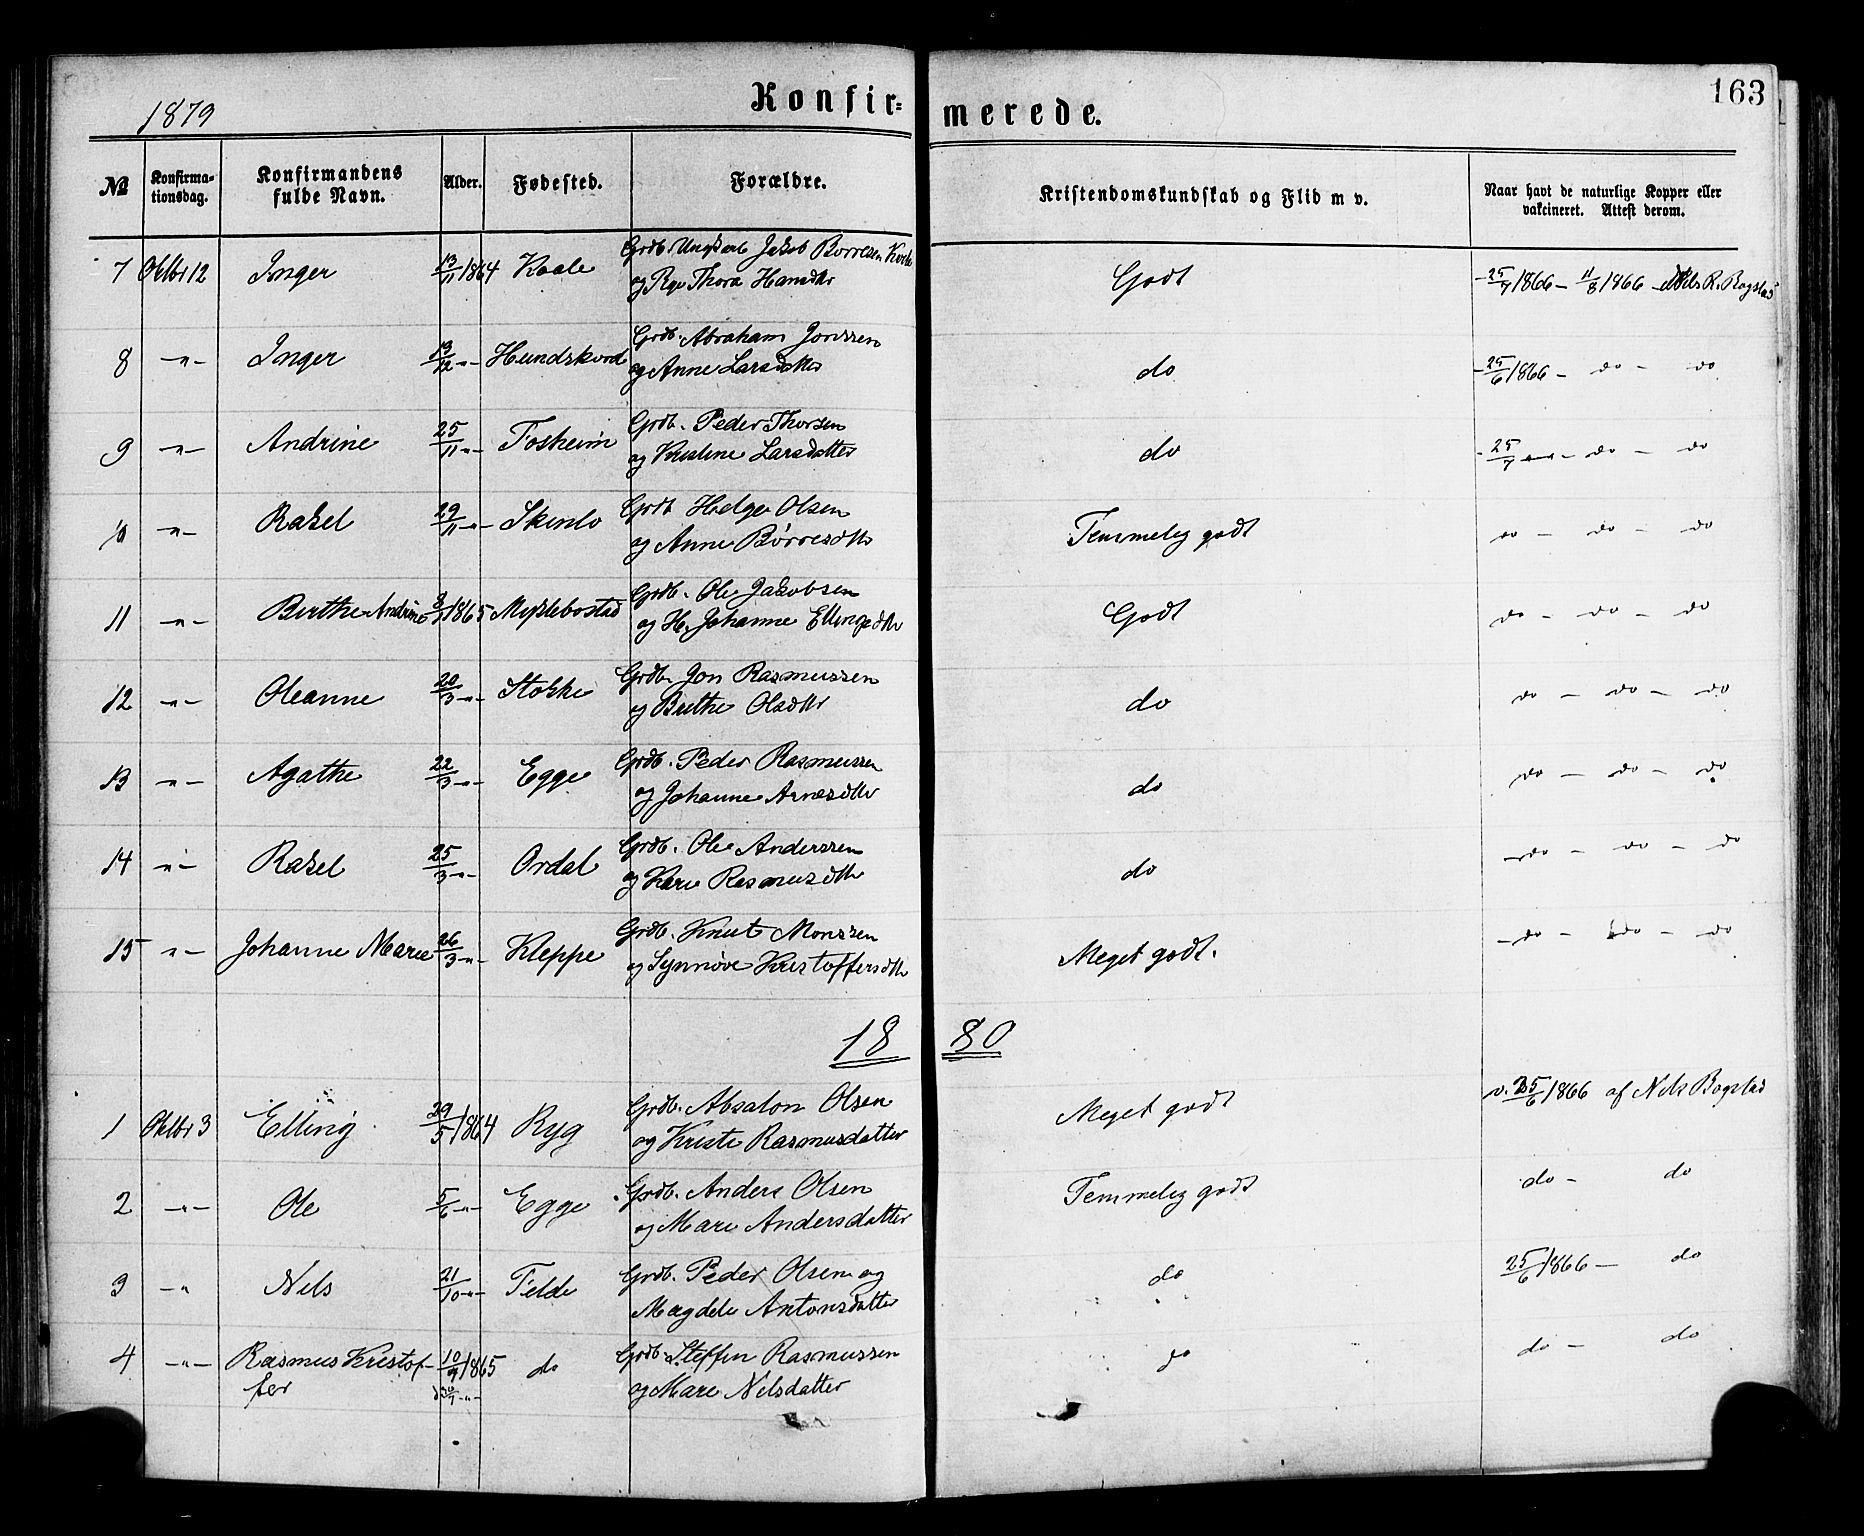 163
1879 Konfir= merede.
№ Konfirma-tionsdag. Konfirmandens fulde Navn. Alder. Fødested. Forældre. Kristendomskundskab og Flid m v. Naar havt de naturlige Kopper eller vakcineret. Attest derom.
7 Oktbr 12 Inger 13/11 1864 Grdb. Ungkarl Jakob Børresen
og Thora Hansdtr Godt - 25/7 1866 - 11/8 1866 - Nils R. Bogstad
8 -"- Inger 13/12 -"- Hundskord Grdb. Abraham Jonssen
og Anne Larsdtter do - 25/6 1866 - do - do
9 -"- Andrine 25/11 -"- Foskeim Grdb. Peder Thorsen
og Kristine Larsdatter do - 25/7 -"- do - do
10 -"- Rakel 29/11 -"- Grdb Helge Olsen
og Anne Børresdtr Temmelig godt do - do - do
11 -"- Birthe Andrine 1865 Myklebostad Grdb. Ole Jakobsen
og H. Johanne Ellingsdtr Godt do - do - do
12 -"- Oleanne 20/3 -"- Stokke Grdb. Jon Rasmussen
og Birthe Olsdtr do do - do - do
13 -"- Agathe 22/3 -"- Egge Grdb. Peder Rasmussen
og Johanne Arnesdtr do do - do - do
14 -"- Rakel 25/3 -"- Ordal Grdb. Ole Anderssen
og Kari Rasmusdtr do - do - do - do
15 -"- Johanne Marie 26/3 -"- Kleppe Grdb. Knut Monssen
og Synnøve Kristoffersdtr Meget godt. - do - do - do
18 80
1 Oktbr 3 Elling 29/5 1864 Ryg Grdb. Absalon Olsen
og Kristi Rasmusdatter Meget godt v. 25/6 1866 af Nils Bogstad
2 -"- Ole 5/6 -"- Egge Grdb. Anders Olsen
og Mari Andersdatter Temmelig godt do - do
3 -" Nils 21/10 -"- Felde Grdb. Peder Olsen og
Magdele Antonsdatter do 25/6 1866 - do
4 -"- Rasmus Kristof- 10/9 1865 do Grdb. Steffen Rasmussen
fer og Mari Nilsdatter do do - do